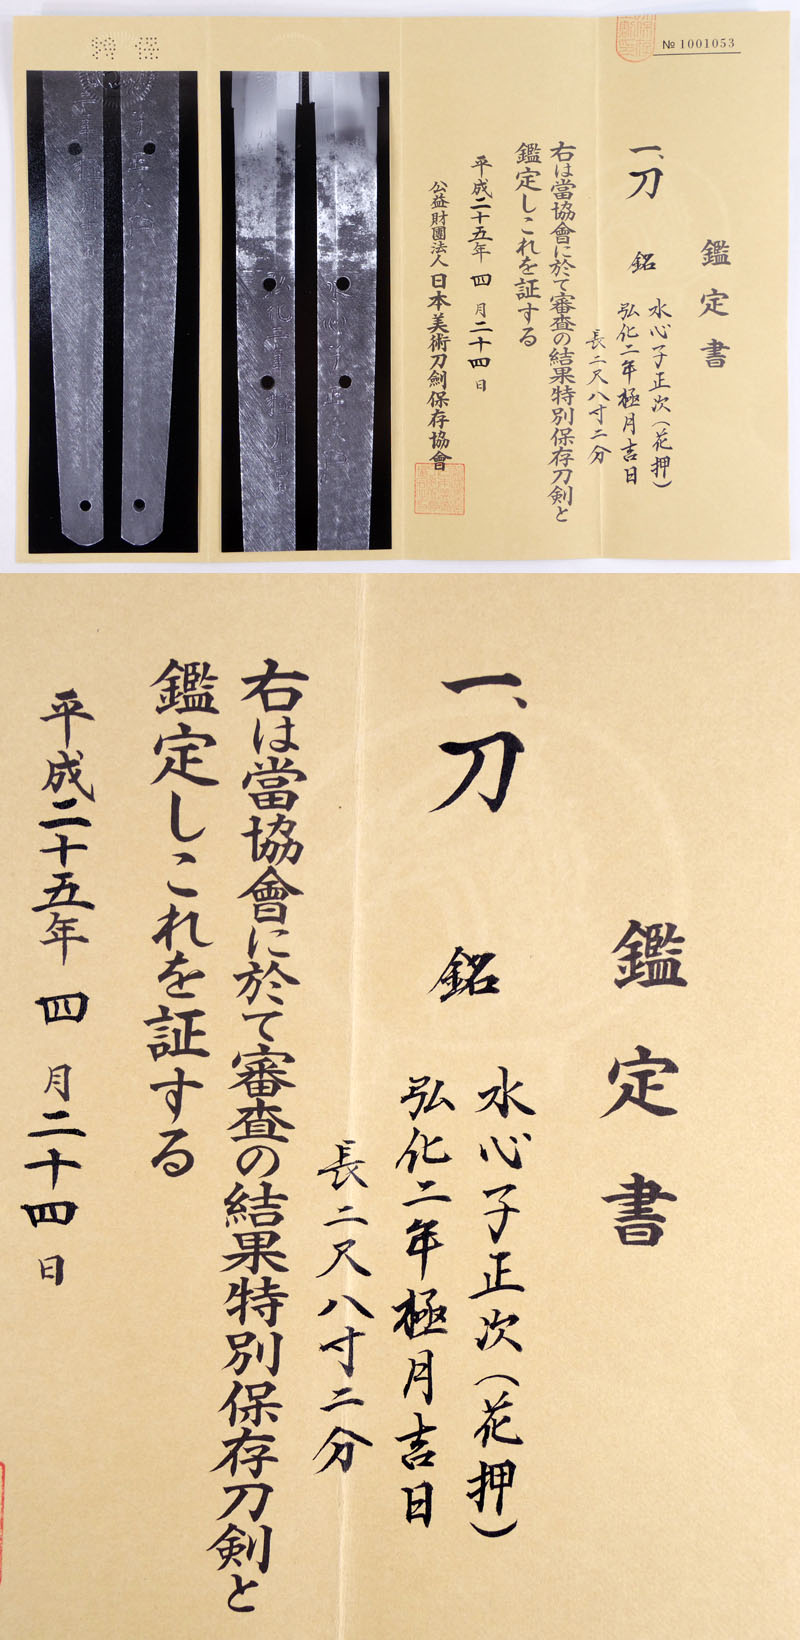 № 1001053
鑑定書
一、刀 銘 水心子正次(花押)
弘化二年極月吉日
長二尺八寸二分
右は當協會に於て審査の結果特別保存刀剣と
鑑定しこれを証する
平成二十五年 四 月二十四日
公益財團法人 日本美術刀劍保存協會
特 保
鑑定書
一、刀 銘 水心子正次(花押)
弘化二年極月吉日
長二尺八寸二分
右は當協會に於て審査の結果特別保存刀剣と
鑑定しこれを証する
平成二十五年 四 月二十四日